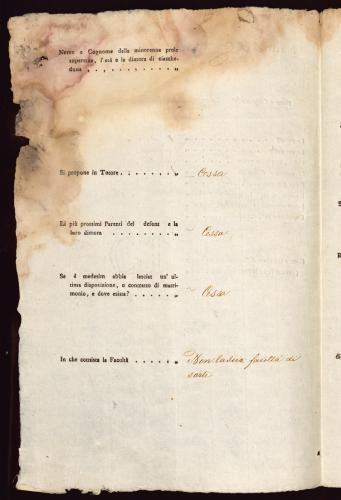 Nome e Cognome della minorenne prole
superstite, l'età e la dimora di ciasche-
duna . . . . . . . . . . „
Si propone in Tutore . . . . . . . . „ Cessa
Ei più prossimi Parenti del defunt e la
loro dimora . . . . . . . . . „ Cessa
Se il medesim abbia lasciat un' ul-
tima disposizione, o contratto di matri-
monio, e dove esista? . . . . . . „ Cessa
In che consista la Facoltà . . . . . „ Non lascia facoltà di
sorte